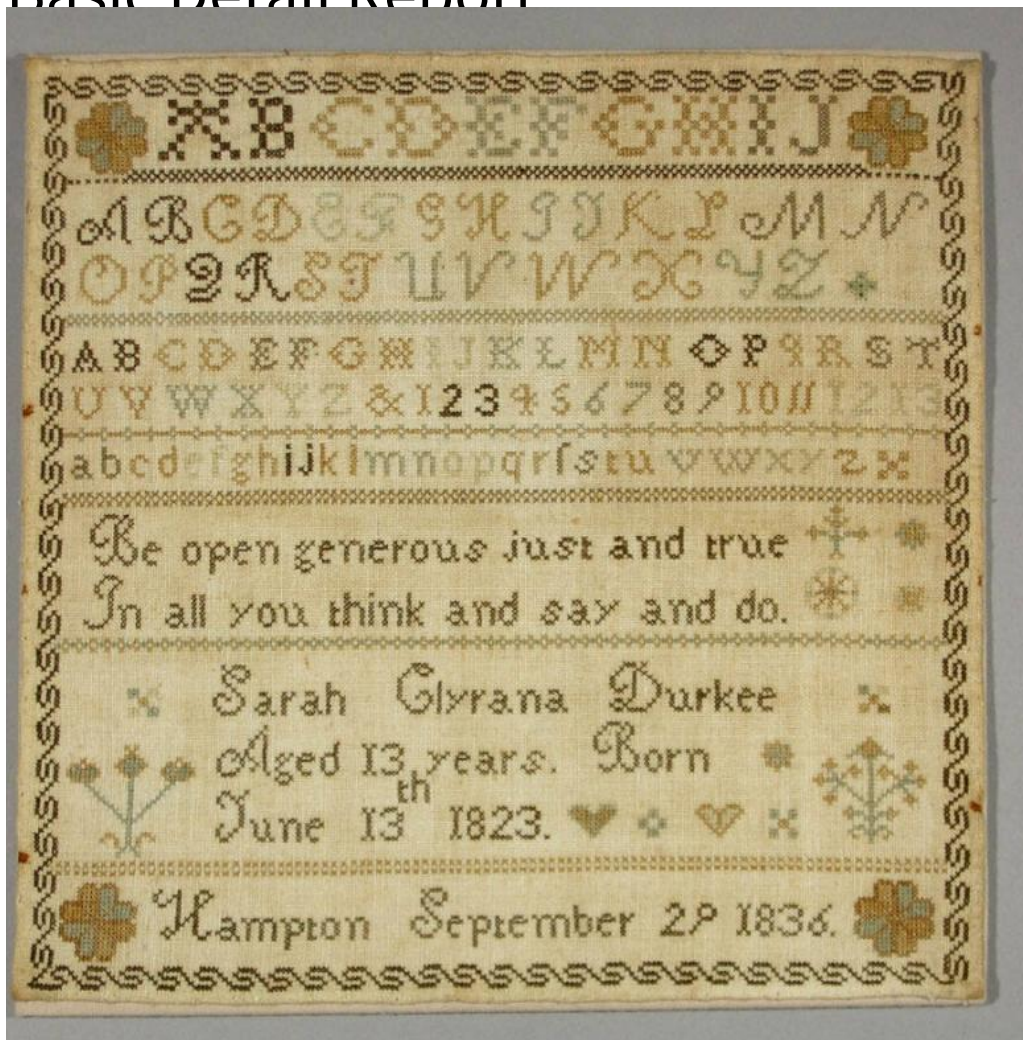 Basic Detail Report
A B C D E F G H I J
A B C D E F G H I J K L M N
O P Q R S T U V W X Y Z
A B C D E F G H I J K L M N O P Q R S T
U V W X Y Z & 1 2 3 4 5 6 7 8 9 10 11 12 13
a b c d e f g h i j k l m n o p q r ſ s t u v w x y z
Be open generous just and true
In all you think and say and do.
Sarah Clyrana Durkee
Aged 13 years. Born
June 13th 1823.
Hampton September 29 1836.